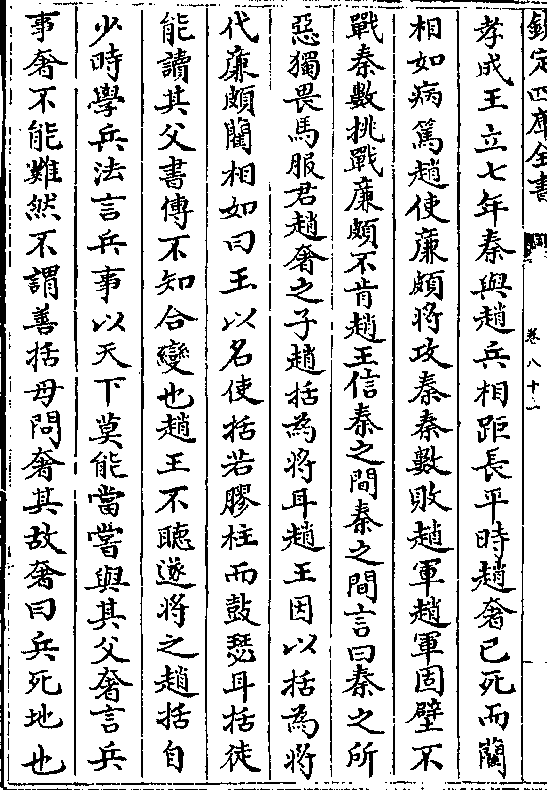 欽定四庫全書
卷八十一
孝成王立七年秦與趙兵相距長平時趙奢已死而藺
相如病篤趙使廉頗將攻秦秦數敗趙軍趙軍固壁不
戰秦數挑戰廉頗不肯趙王信秦之間秦之間言曰秦之所
惡獨畏馬服君趙奢之子趙括為將耳趙王因以括為將
代廉頗藺相如曰王以名使括若膠柱而鼓瑟耳括徒
能讀其父書傳不知合變也趙王不聽遂將之趙括自
少時學兵法言兵事以天下莫能當嘗與其父奢言兵
事奢不能難然不謂善括母問奢其故奢曰兵死地也